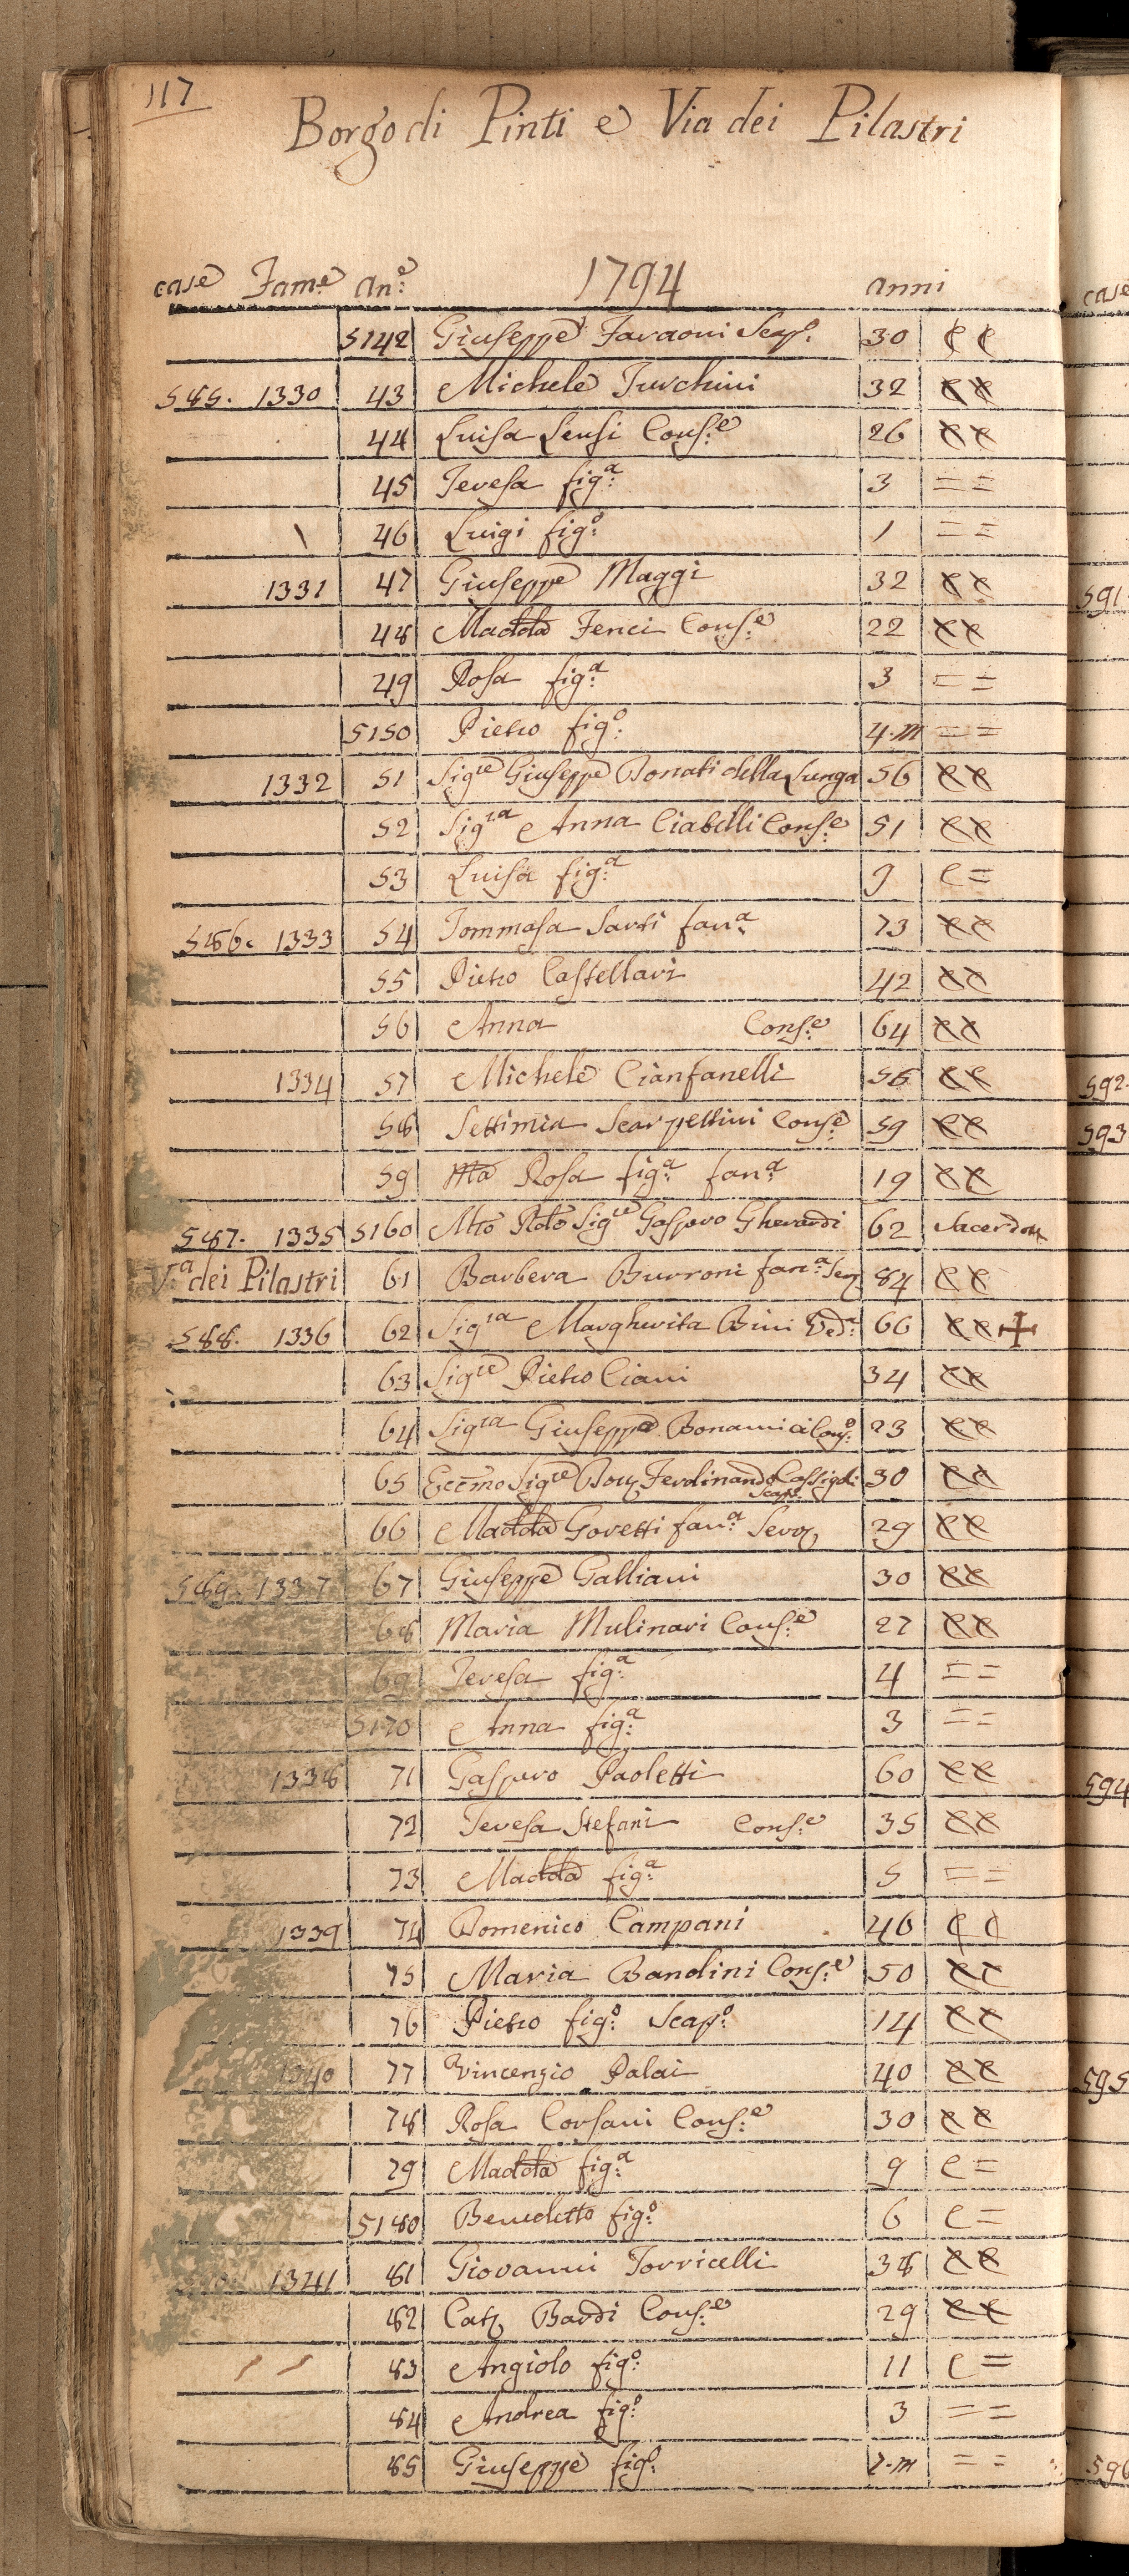 117
Borgo di Pinti e Via dei Pilastri
case Fam:e an:e 1794 anni
5142 Giuseppe Faraoni Scap:o 30 C C
585. 1330 43 Michele Turchini 32
44 Luisa Lensi Cons:e 26
45 Teresa fig:a 3 = =
46 Luigi fig:o 1 = =
1331 47 Giuseppe Maggi 32
48 Madda Fenci Cons:e 22
49 Rosa fig:a 3 = =
5150 Pietro fig:o 4.m = =
1332 51 Sigre Giuseppe Bonati della Lunga 56
52 Sigra Anna Ciabilli Cons:e 51
53 Luisa fig:a 9 C =
586. 1333 54 Tommasa Sarti fan:a 73
55 Pietro Castellari 42
56 Anna Cons:e 64
1334 57 Michele Cianfanelli 56
58 Settimia Scarpettini Cons:e 59
59 Ma Rosa fig:a fan:a 19
587. 1335 5160 Mto Rdo Sigre Gasparo Gherardi 62
V:a dei Pilastri 61 Barbera Burroni fan:a Ser 84
588. 1336 62 Sigra Margherita Bini Ved:a 66 +
63 Sigre Pietro Ciani 34
64 Sigra Giuseppa Bonamici Cons:e 23
65 Eccmo Sigre Ferdinando Cassigoli Scap:o 30
66 Madda Goretti fan:a Serv 29
589. 1337 67 Giuseppe Galliani 30
68 Maria Mulinari Cons:e 27
69 Teresa fig:a 4 = =
5170 Anna fig:a 3 = =
1338 71 Gasparo Paoletti 60
72 Teresa Stefani Cons:e 35
73 Madda fig:a 5 = =
1339 74 Domenico Campani 46 C C
75 Maria Bandini Cons:e 50
76 Pietro fig:o Scap:o 14
1340 77 Vincenzio Palai 40
78 Rosa Corsani Cons:e 30
79 Madda fig:a 9 C =
5180 Benedetto fig:o 6 C =
1341 81 Giovanni Torricelli 38
82 Cat Bardi Cons:e 29
83 Angiolo fig:o 11 C =
84 Andrea fig:o 3 = =
85 Giuseppe fig:o 2.m = =
case
591
592
593
594
595
596